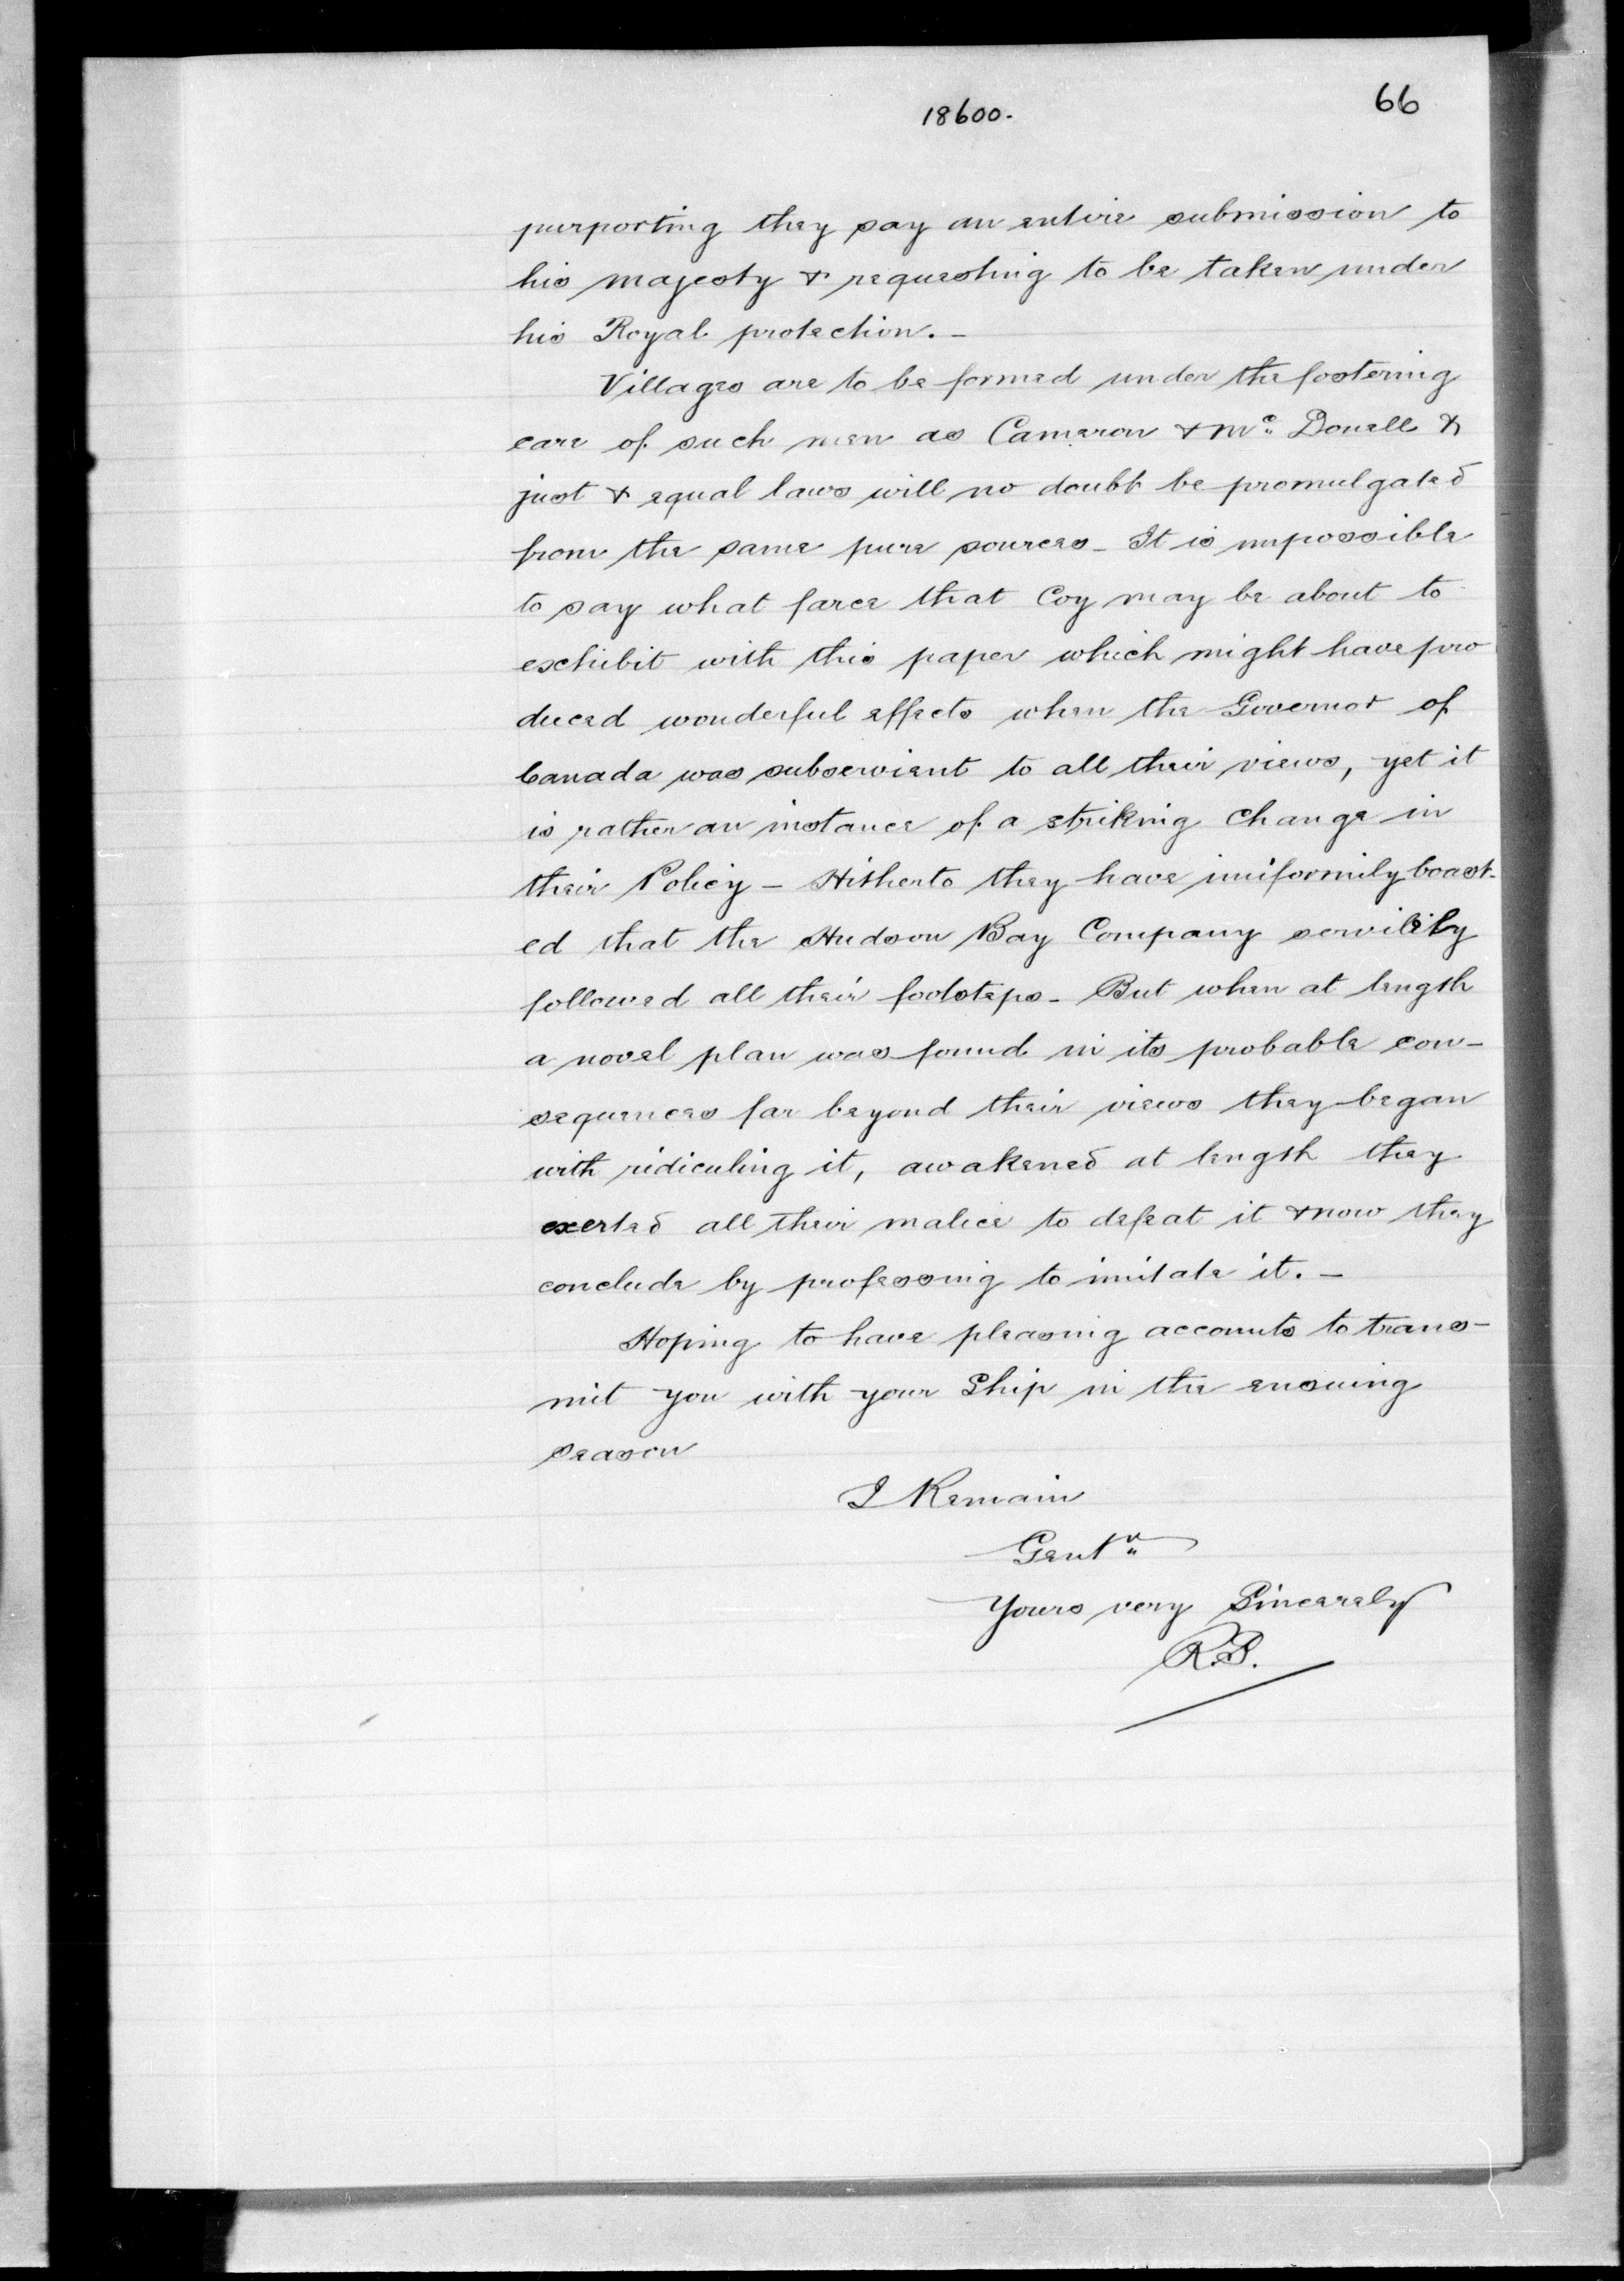 18600.
66
purporting they say an entire submission to
his majesty & requesting to be taken under
his Royal protection. -
Villages are to be formed under the fostering
care of such men as Cameron & Mc. Donell &
just & equal laws will no doubt be promulgated
from the same pure sources - It is impossible
to say what farce that Coy may be about to
exhibit with this paper which might have pro
duced wonderful effects when the Governor of
Canada was subservient to all their views, yet it
is rather an instance of a striking change in
their Policy - Hitherto they have uniformily boast-
ed that the Hudson Bay Company servilily
followed all their footsteps - But when at length
a novel plan was found in its probable con-
sequences far beyond their views they began
with ridiculing it, awakened at length they
exerted all their malice to defeat it & now they
conclude by professing to imitate it. -
Hoping to have pleasing accounts to trans-
mit you with your Ship in the ensuing
season
I Remain
Gentn
Yours very Sincerely
R.S.